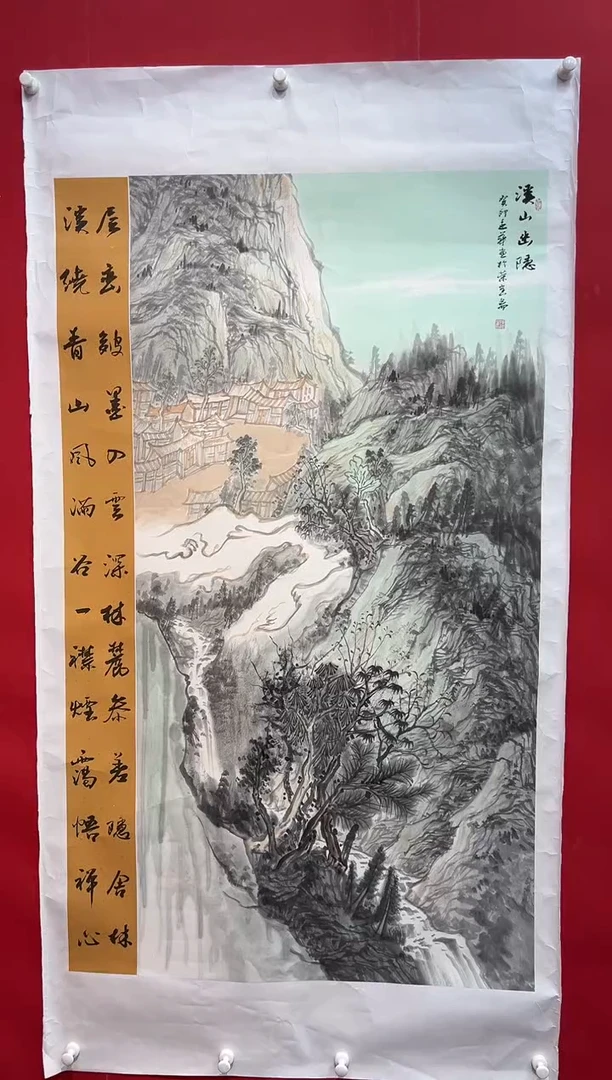 溪山幽隐
癸卯
层峦皴墨入雲深林麓参差隐舍林
溪绕青山风满谷一襟煙靄悟禅心